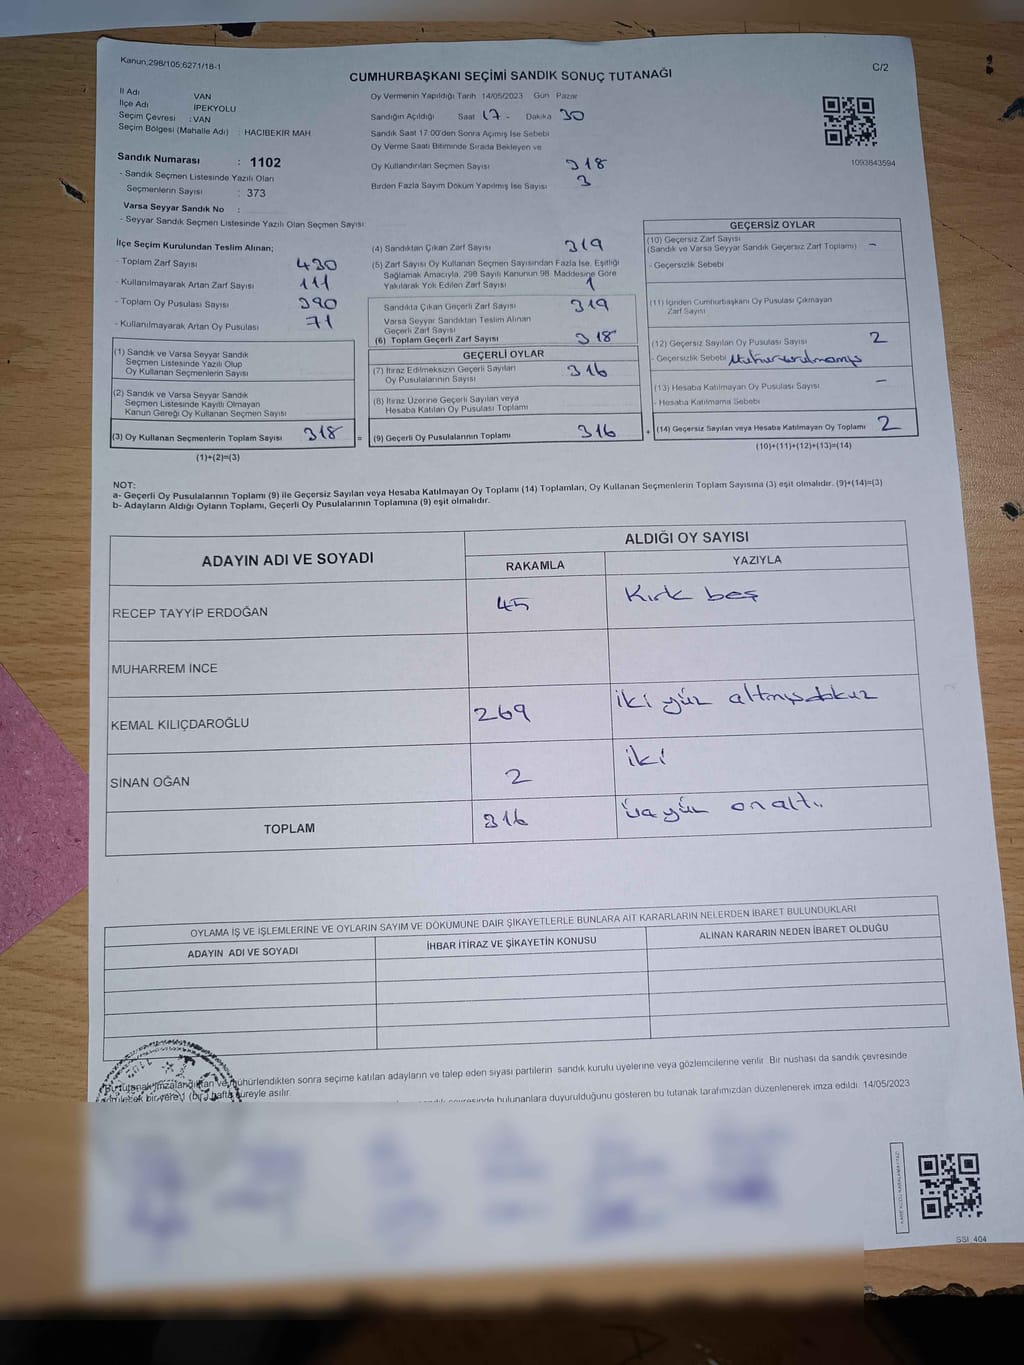 Kanun;298/105;6271/18-1
C/2
CUMHURBAŞKANI SEÇİMİ SANDIK SONUÇ TUTANAĞI
İl Adı VAN
İlçe Adı İPEKYOLU
Seçim Çevresi : VAN
Seçim Bölgesi (Mahalle Adı) : HACIBEKİR MAH
Oy Vermenin Yapıldığı Tarih 14/05/2023 Gün Pazar
Sandığın Açıldığı Saat 17- Dakika 30
Sandık Saat 17:00'den Sonra Açımış İse Sebebi
Oy Verme Saati Bitiminde Sırada Bekleyen ve
Oy Kullandırılan Seçmen Sayısı 318
Birden Fazla Sayım Döküm Yapılmış İse Sayısı 3
1093843594
Sandık Numarası : 1102
- Sandık Seçmen Listesinde Yazılı Olan
Seçmenlerin Sayısı : 373
Varsa Seyyar Sandık No :
- Seyyar Sandık Seçmen Listesinde Yazılı Olan Seçmen Sayısı:
İlçe Seçim Kurulundan Teslim Alınan;
- Toplam Zarf Sayısı 430
- Kullanılmayarak Artan Zarf Sayısı 111
- Toplam Oy Pusulası Sayısı 390
- Kullanılmayarak Artan Oy Pusulası 71
(1) Sandık ve Varsa Seyyar Sandık
Seçmen Listesinde Yazılı Olup
Oy Kullanan Seçmenlerin Sayısı
(2) Sandık ve Varsa Seyyar Sandık
Seçmen Listesinde Kayıtlı Olmayan
Kanun Gereği Oy Kullanan Seçmen Sayısı
(3) Oy Kullanan Seçmenlerin Toplam Sayısı 318 =
(1)+(2)=(3)
(4) Sandıktan Çıkan Zarf Sayısı 319
(5) Zarf Sayısı Oy Kullanan Seçmen Sayısından Fazla İse, Eşitliği
Sağlamak Amacıyla, 298 Sayılı Kanunun 98. Maddesine Göre
Yakılarak Yok Edilen Zarf Sayısı 1
Sandıkta Çıkan Geçerli Zarf Sayısı 319
Varsa Seyyar Sandıktan Teslim Alınan
Geçerli Zarf Sayısı
(6) Toplam Geçerli Zarf Sayısı 318
GEÇERLİ OYLAR
(7) İtiraz Edilmeksizin Geçerli Sayılan
Oy Pusulalarının Sayısı 316
(8) İtiraz Üzerine Geçerli Sayılan veya
Hesaba Katılan Oy Pusulası Toplamı
(9) Geçerli Oy Pusulalarının Toplamı 316 +
GEÇERSİZ OYLAR
(10) Geçersiz Zarf Sayısı
(Sandık ve Varsa Seyyar Sandık Geçersiz Zarf Toplamı) -
- Geçersizlik Sebebi
(11) İçinden Cumhurbaşkanı Oy Pusulası Çıkmayan
Zarf Sayısı
(12) Geçersiz Sayılan Oy Pusulası Sayısı 2
- Geçersizlik Sebebi
(13) Hesaba Katılmayan Oy Pusulası Sayısı -
- Hesaba Katılmama Sebebi
(14) Geçersiz Sayılan veya Hesaba Katılmayan Oy Toplamı 2
(10)+(11)+(12)+(13)=(14)
NOT:
a- Geçerli Oy Pusulalarının Toplamı (9) ile Geçersiz Sayılan veya Hesaba Katılmayan Oy Toplamı (14) Toplamları, Oy Kullanan Seçmenlerin Toplam Sayısına (3) eşit olmalıdır. (9)+(14)=(3)
b- Adayların Aldığı Oyların Toplamı, Geçerli Oy Pusulalarının Toplamına (9) eşit olmalıdır.
ADAYIN ADI VE SOYADI
ALDIĞI OY SAYISI
RAKAMLA YAZIYLA
RECEP TAYYİP ERDOĞAN 45 Kırk beş
MUHARREM İNCE
KEMAL KILIÇDAROĞLU 269 iki yüz altmışdokuz
SİNAN OĞAN 2 iki
TOPLAM 316 üçyüz onaltı
OYLAMA İŞ VE İŞLEMLERİNE VE OYLARIN SAYIM VE DÖKÜMÜNE DAİR ŞİKAYETLERLE BUNLARA AİT KARARLARIN NELERDEN İBARET BULUNDUKLARI
ADAYIN ADI VE SOYADI İHBAR İTİRAZ VE ŞİKAYETİN KONUSU ALINAN KARARIN NEDEN İBARET OLDUĞU
Bu tutanak imzalandıktan ve mühürlendikten sonra seçime katılan adayların ve talep eden siyasi partilerin sandık kurulu üyelerine veya gözlemcilerine verilir. Bir nüshası da sandık çevresinde
(bir) hafta süreyle asılır.
bulunanlara duyurulduğunu gösteren bu tutanak tarafımızdan düzenlenerek imza edildi. 14/05/2023
SSI_404